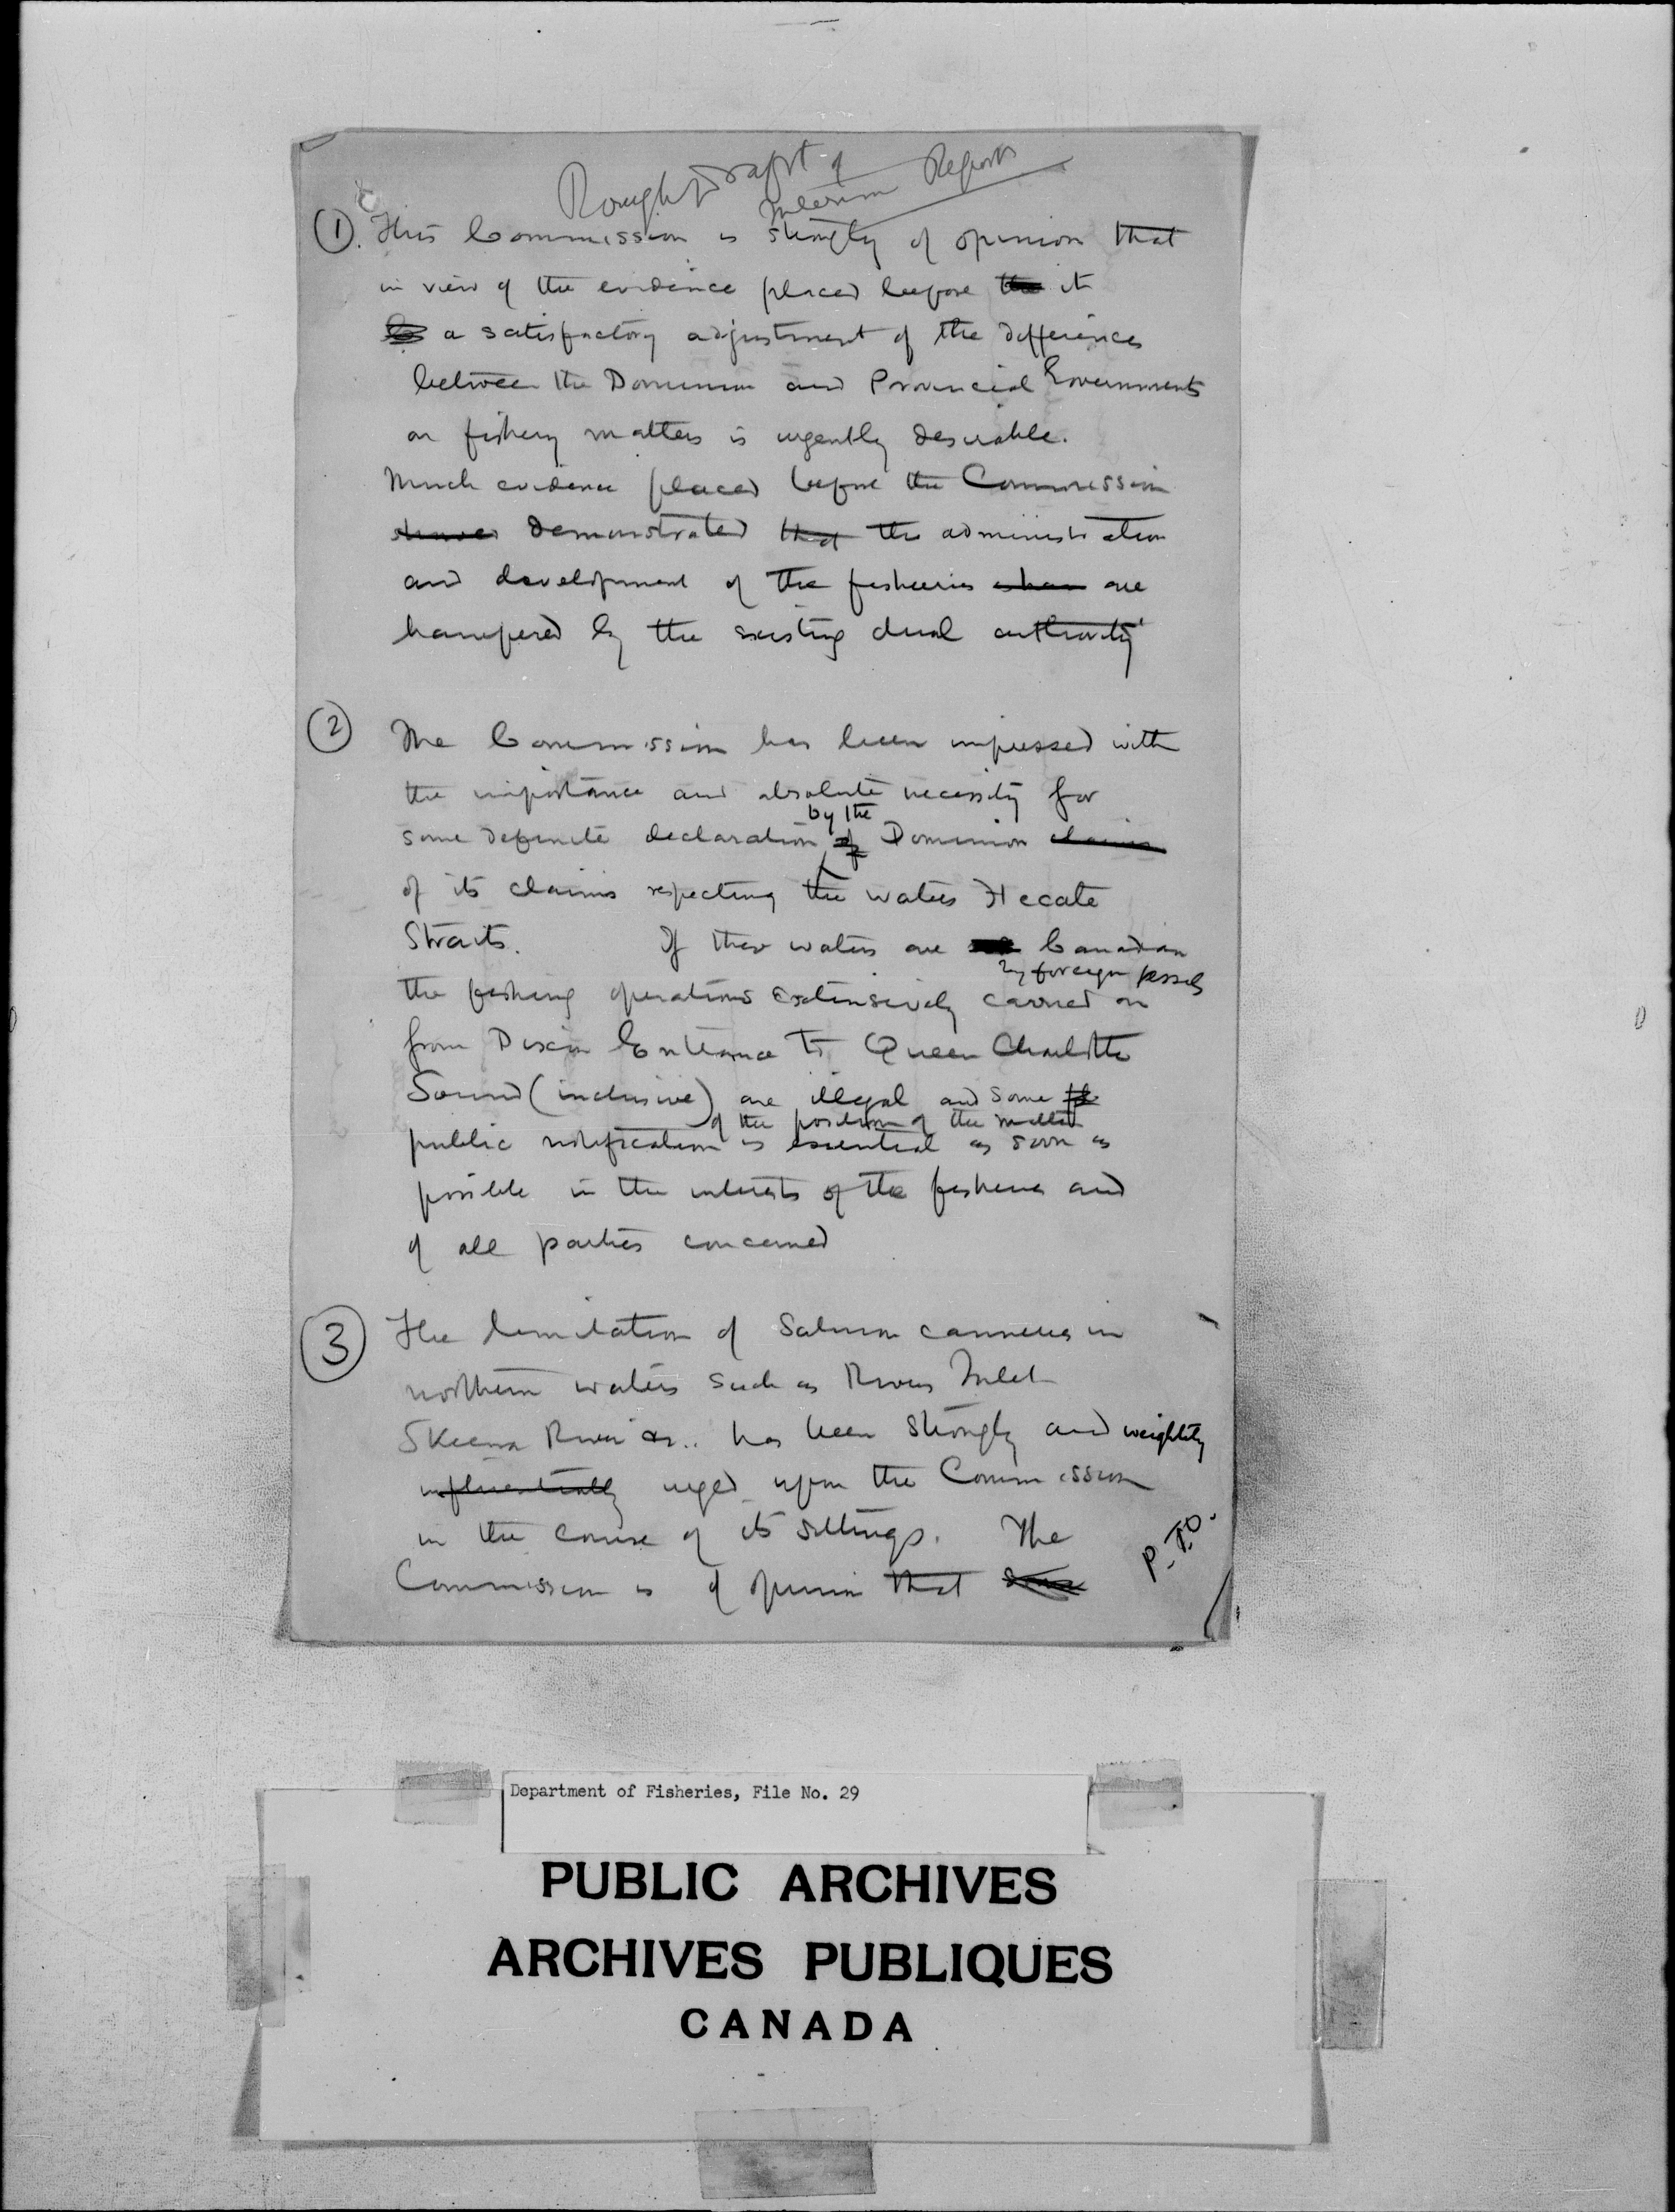 Rough Draft of
Interim Report
(1). This Commission is strongly of opinion that
in view of the evidence placed before the it
a satisfactory adjustment of the differences
between the Dominion and Provincial Governments
on fishery matters is urgently desirable.
Much evidence placed before the Commission
shows demonstrated that the administration
and development of the fisheries are
hampered by the existing dual authority
(2) The Commission has been impressed with
the importance and absolute necessity for
by the
some definite declaration of Dominion claims
of its claims respecting the waters Hecate
Straits. If these waters are Canadian
by foreign vessels
the fishing operations extensively carried on
from Dixon Entrance to Queen Charlotte
Sound (inclusive) are illegal and some
of the position of the matter
public notification is essential as soon as
possible in the interests of the fisheries and
of all parties concerned
(3) The limitation of Salmon canneries in
northern waters such as Rivers Inlet
Skeena River &c.. has been strongly and weightily
influentially urged upon the Commission
in the course of its sittings. The
Commission is of opinion that
P.T.O.
Department of Fisheries, File No. 29
PUBLIC ARCHIVES
ARCHIVES PUBLIQUES
CANADA